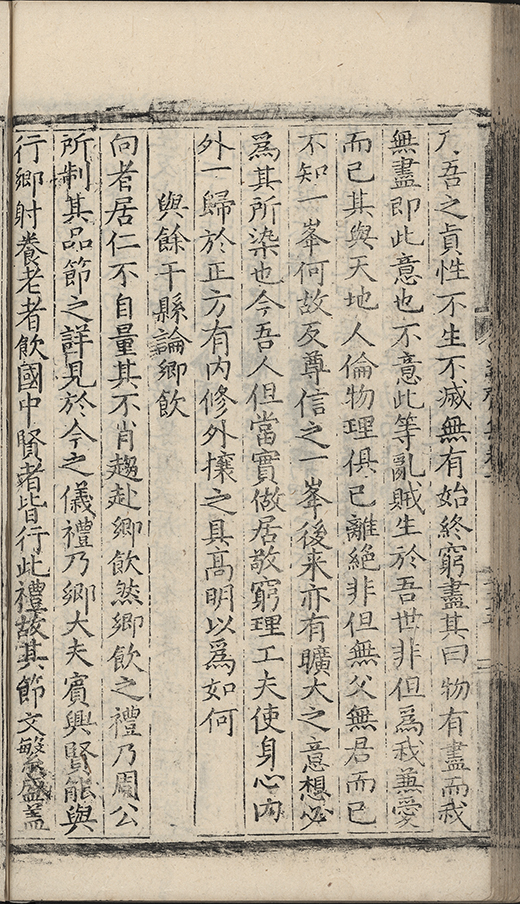 乃吾之真性不生不滅無有始終窮盡其曰物有盡而我
無盡即此意也不意此等亂賊生於吾世非但為我兼愛
而已其與天地人倫物理俱已離絕非但無父無君而已
不知一峯何故反尊信之一峯後来亦有曠大之意想必
爲其所染也今吾人但當實做居敬窮理工夫使身心内
外一歸於正方有内修外攘之具髙明以爲如何
與餘干縣論鄉飲
向者居仁不自量其不肖趨赴鄉飲然鄉飲之禮乃周公
所制其品節之詳見於今之儀禮乃鄉大夫賓興賢能與
行鄉射養老者飲國中賢者皆行此禮故其節文繁盛盖